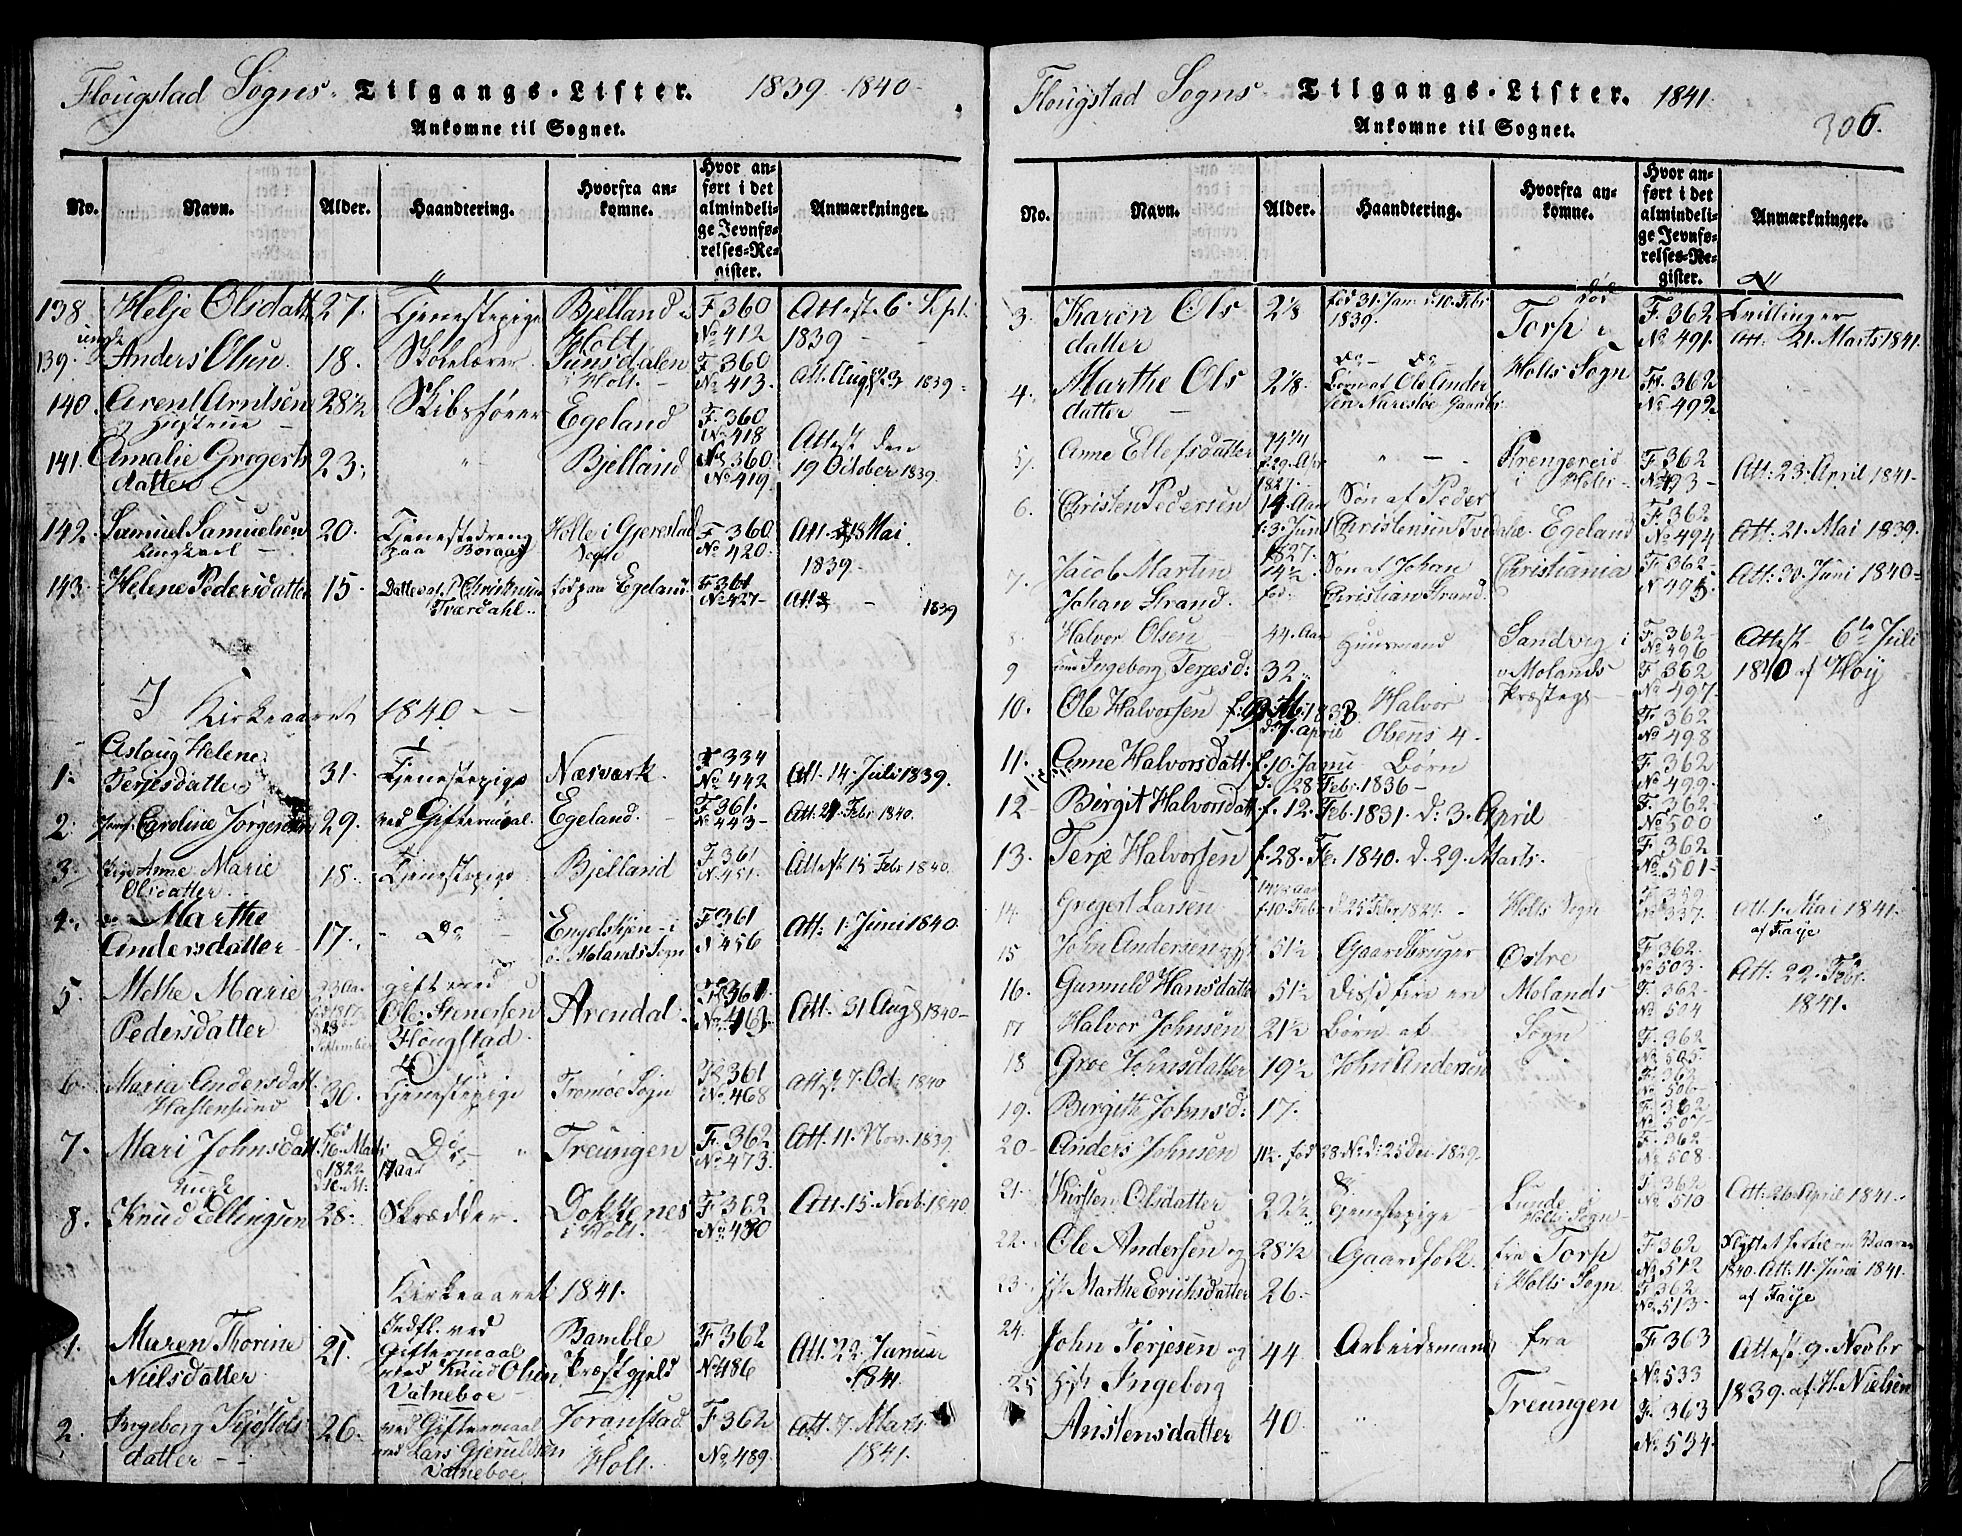 Flougstad Sogns Tilgangs-Lister. 1839-1840
Ankomne til Sognet.
No. Navn. Alder. Haandtering. Hvorfra ankomne. Hvor anført i det almindelige Jevnførelses-Register. Anmærkninger.
138 Helje Olsdatt 27. Tjenestepige Bjelland i Holt F 360 No 412 Attest 6. Sept. 1839
139. Anders Olsen 18. Skolelærer i Holt F 360 No 413. Att. Aug 23 1839.
140 Arent Arntsen 28½ Skibsfører Egeland F. 360 No 418 Attest den
og Hustrue
141. Amalie Gregers datter 23. " Bjelland No 360 No 419. 19 October 1839.
142. Samuel Samuelsen 20. Tjenestedreng paa Boraas Holte i Gjerestad Sogn F. 360 No 420. Att. 18 Mai 1839.
Ungkarl
143. Helene Pedersdatter 15 Datter af P Christensen Tværdahl. fød paa Egeland F 361 No 427 Att 1839
I Kirkeaaret 1840
1. Aslaug Helene Terjesdatter 31. Tjenestepige Næsværk. F 334 No 442 Att. 14. Juli 1839.
2. Jomf. Caroline Jørgensen 29. ved Giftermaal. Egeland. F. 361. No 443 Att. 21 Febr 1840.
3. Pige Anne Marie Olsdatter 18. Tjenestepige Bjelland F 361 No 451. Attest 15 Febr 1840.
4. Do Marthe Andersdatter 17. Do Engelskjøn i ø. Molands Sogn F 361 No 456 Att: 1. Juni 1840.
5. Methe Marie Pedersdatter 23 Aar gift med Ole Stenersen Flougstad Arendal. F 361 No 463. Att. 31 Aug 1840
6. Maria Andersdatt. Hastensund 30. Tjenestepige Tromøe Sogn F 361 No 468 Att 7. Oct. 1840
7. Mari Johnsdatt. fød 16. Marts 1822 17 Aar Do Treungen F. 362 No 473. Att. 11. Nov. 1839.
8. Knud Ellingsen 28. Skrædder. Dokkenes i Holt. F 362 No 480 Att. 15. Novb. 1840.
Kirkeaaret 1841.
1. Maren Thorine Nielsdatter 21. Indfl. ved Giftermaal med Knud Olsen Valneboe Bamble Præstgjeld F 362 No 486 Att. 22. Januar 1841.
2. Ingeborg Kjøstols datter 26. ved Giftermaal med Lars Gjeruldsen Valneboe Joranstad Holt. F 362 No 489. Att. 7. Marts 1841.
Flougstad Sogns Tilgangs-Lister. 1841.
Ankomne til Sognet.
306.
No. Navn. Alder. Haandtering. Hvorfra ankomne. Hvor anført i det almindelige Jevnførelses-Register. Anmærkninger.
3. Karen Ols datter 2⅛ fød 31. Jan. d. 10. Febr 1839. Torp i F. 362 No 491. Tvillinger Att. 21. Marts 1841.
4. Marthe Ols datter 2⅛. Do Do Børn af Ole Andersen Narestøe Holts Sogn F. 362 No 492.
5. Anne Ellefsdatter 14¼ f. 29. Apr 1827. Krengereid i Holts F. 362 No 493 Att: 23. April 1841.
6. Christen Pedersen 14. Aar f. 3. Juni 1827. Søn af Peder Christensen Egeland F. 362 No 494 Att: 21. Mai 1839.
7. Jacob Martin Johan Strand. 14½ Søn af Johan Christian Strand. Christiania F. 362 No 495. Att: 30. Juni 1840
8. Halvor Olsen 44. Aar Huusmand Sandvig i F. 362 No 496 Attest 6te Juli
9 Ingeborg Terjesd: 32. ø Molands Præsteg. F. 362 No 497. 1840 af Høy
10. Ole Halvorsen d. 7. April Halvor Olsens 4 F. 362 No 498
11. Anne Halvorsdatt. f. 10. Janu d. 28 Feb. 1836 Børn F. 362 No 499.
12 Birgit Halvorsdatt. f. 12. Feb. 1831. d: 3. April F. 362 No 500
13. Terje Halvorsen f. 28. Fe. 1840. d. 29. Marts. F. 362 No 501
14. Gregert Larsen f. 10. Febr d. 25 Febr 1827. Holts Sogn No 337. Att. 1. Mai 1841. af Faije
15 John Andersen og 51½ Gaardbruger Østre F 362. No 503. Att: 22. Febr. 1841.
16. Gunnuld Hansdatter 51½ Disse fire ere Molands F. 362 No 504
17 Halvor Johnsen 21½ Børn af Sogn F. 362 No 505
18 Groe Johnsdatter 19½ John Andersen F. 362 No 506
19. Birgitte Johnsd: 17. F. 362 No 507
20 Anders Johnsen 11½. fød 28. No. d: 25 Dec. 1829. F. 362 No 508.
21. Kirsten Olsdatter 22½ Tjenestepige Lunde i Holts Sogn F. 362 No 510 Att: 26 April 1841.
22. Ole Andersen og 28½ Gaardfolk. fra Torp F 362 No 512 Flyttet hertil om Vaaren
23. Marthe Erichsdatter 26. i Holts Sogn F 362 No 513. 1840. Att: 11. Juni 1841. af Faije
24. John Terjesen og 44 Arbeidsmand fra F. 363 No 533 Attest 9. Novbr
25 H. Ingeborg Anstensdatter 40. " Treungen F. 363 No 534. 1839. af H. Nielsen